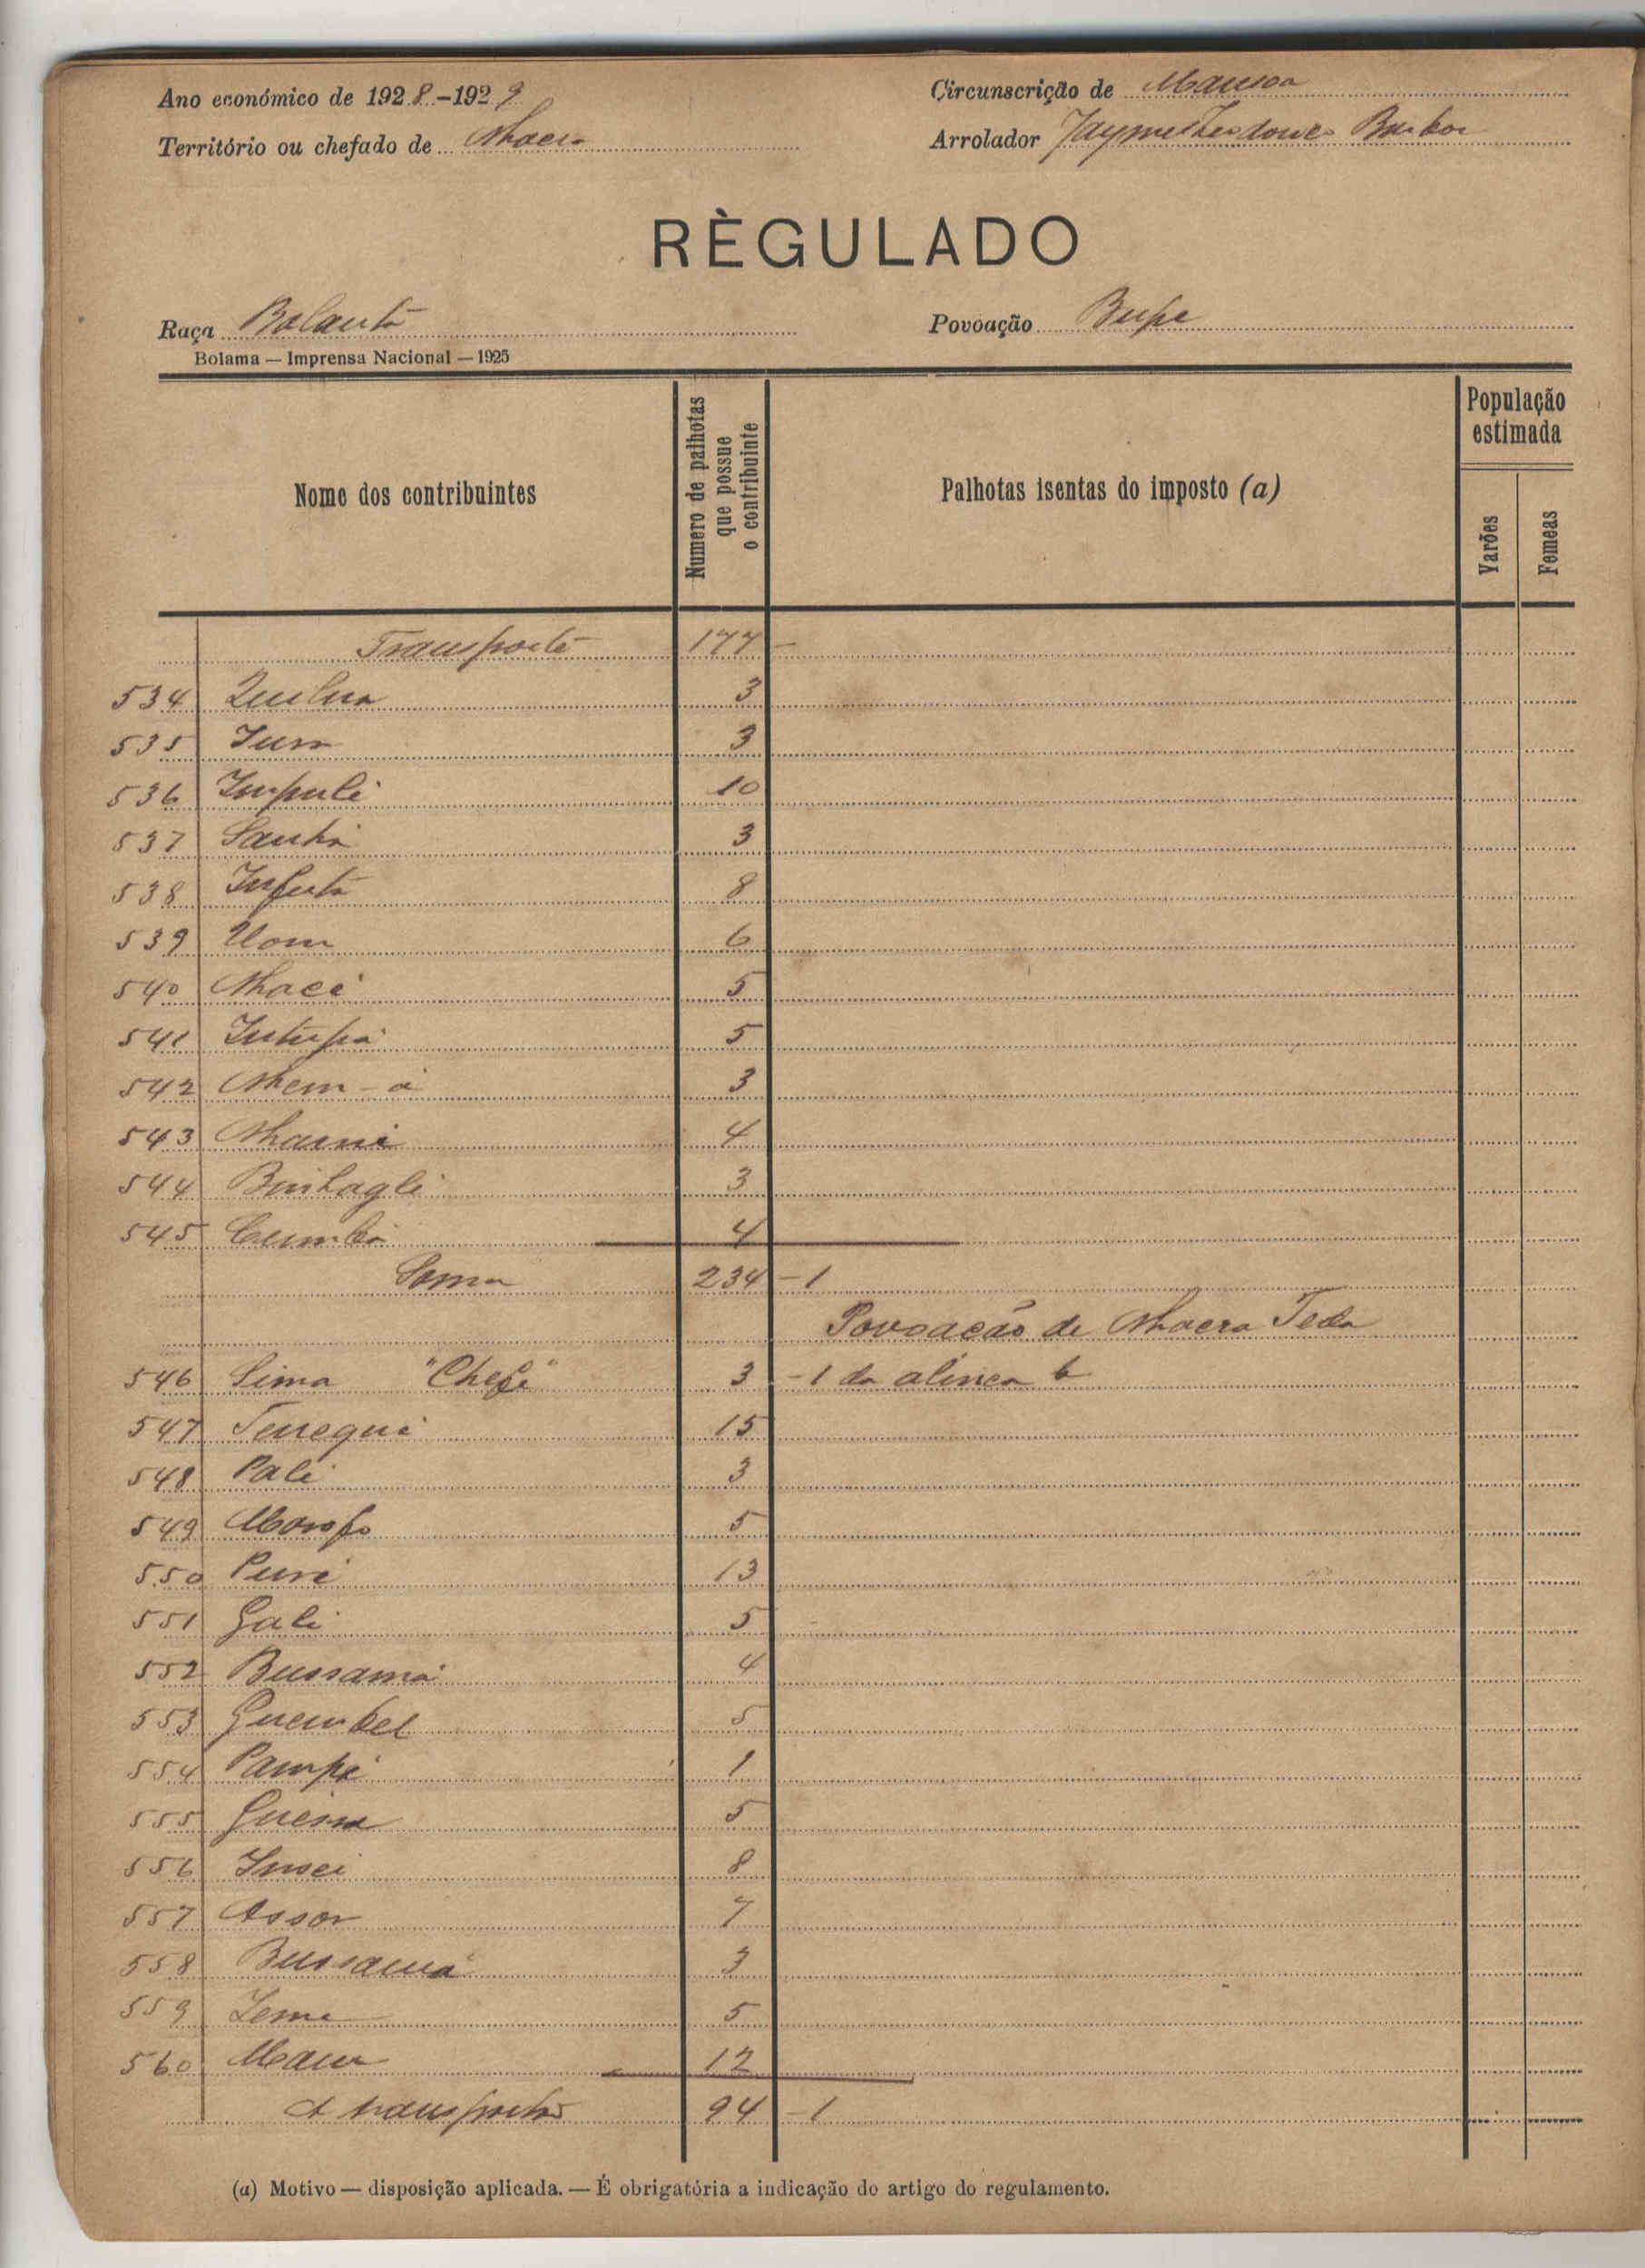 Ano económico de 1928-1929
Circunscrição de Mansoa
Território ou chefado de Nhacra
Arrolador Jayme Barbosa
RÈGULADO
Raça Balanta
Povoação Bupe
Bolama — Imprensa Nacional — 1925
Nome dos contribuintes
Numero de palhotas que possue o contribuinte
Palhotas isentas do imposto (a)
População estimada
Varões
Femeas
Transporte 177 -
534 3
535 3
536 Impulé 10
537 Sanhá 3
538 8
539 Uom 6
540 Nhacé 5
541 5
542 Nhem-á 3
543 4
544 3
545 Cumbá 4
Soma 234 - 1
Povoação de Nhacra Teda
546 Sima "Chefe" 3 - 1 da alinea b
547 Tenegué 15
548 Palé 3
549 5
550 13
551 Gali 5
552 Bussamá 4
553 Guembel 5
554 Pampé 1
555 5
556 8
557 Assor 7
558 Bussamá 3
559 5
560 12
A transportar 94 - 1
(a) Motivo — disposição aplicada. — É obrigatória a indicação do artigo do regulamento.